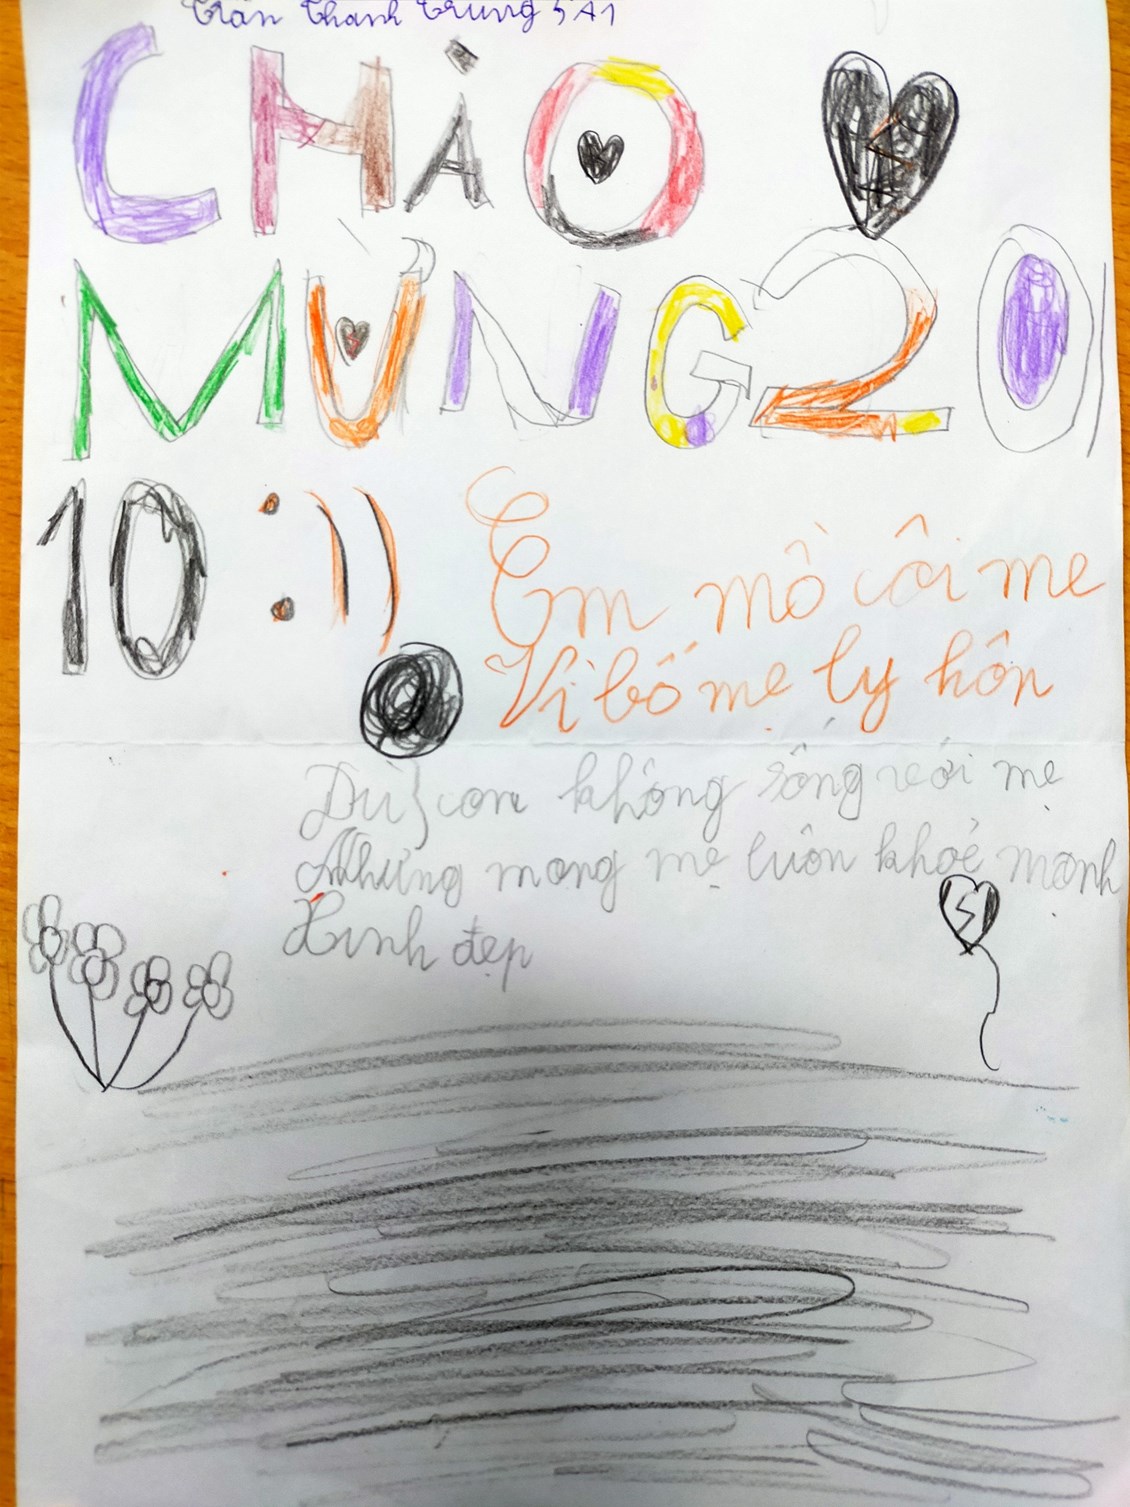 Trần Thành Trung 5A1
CHÀO
MỪNG 20/
10 :))
Em mồ côi mẹ
Vì bố mẹ ly hôn
Dù con không sống với mẹ
Nhưng mong mẹ luôn khoẻ mạnh
Xinh đẹp